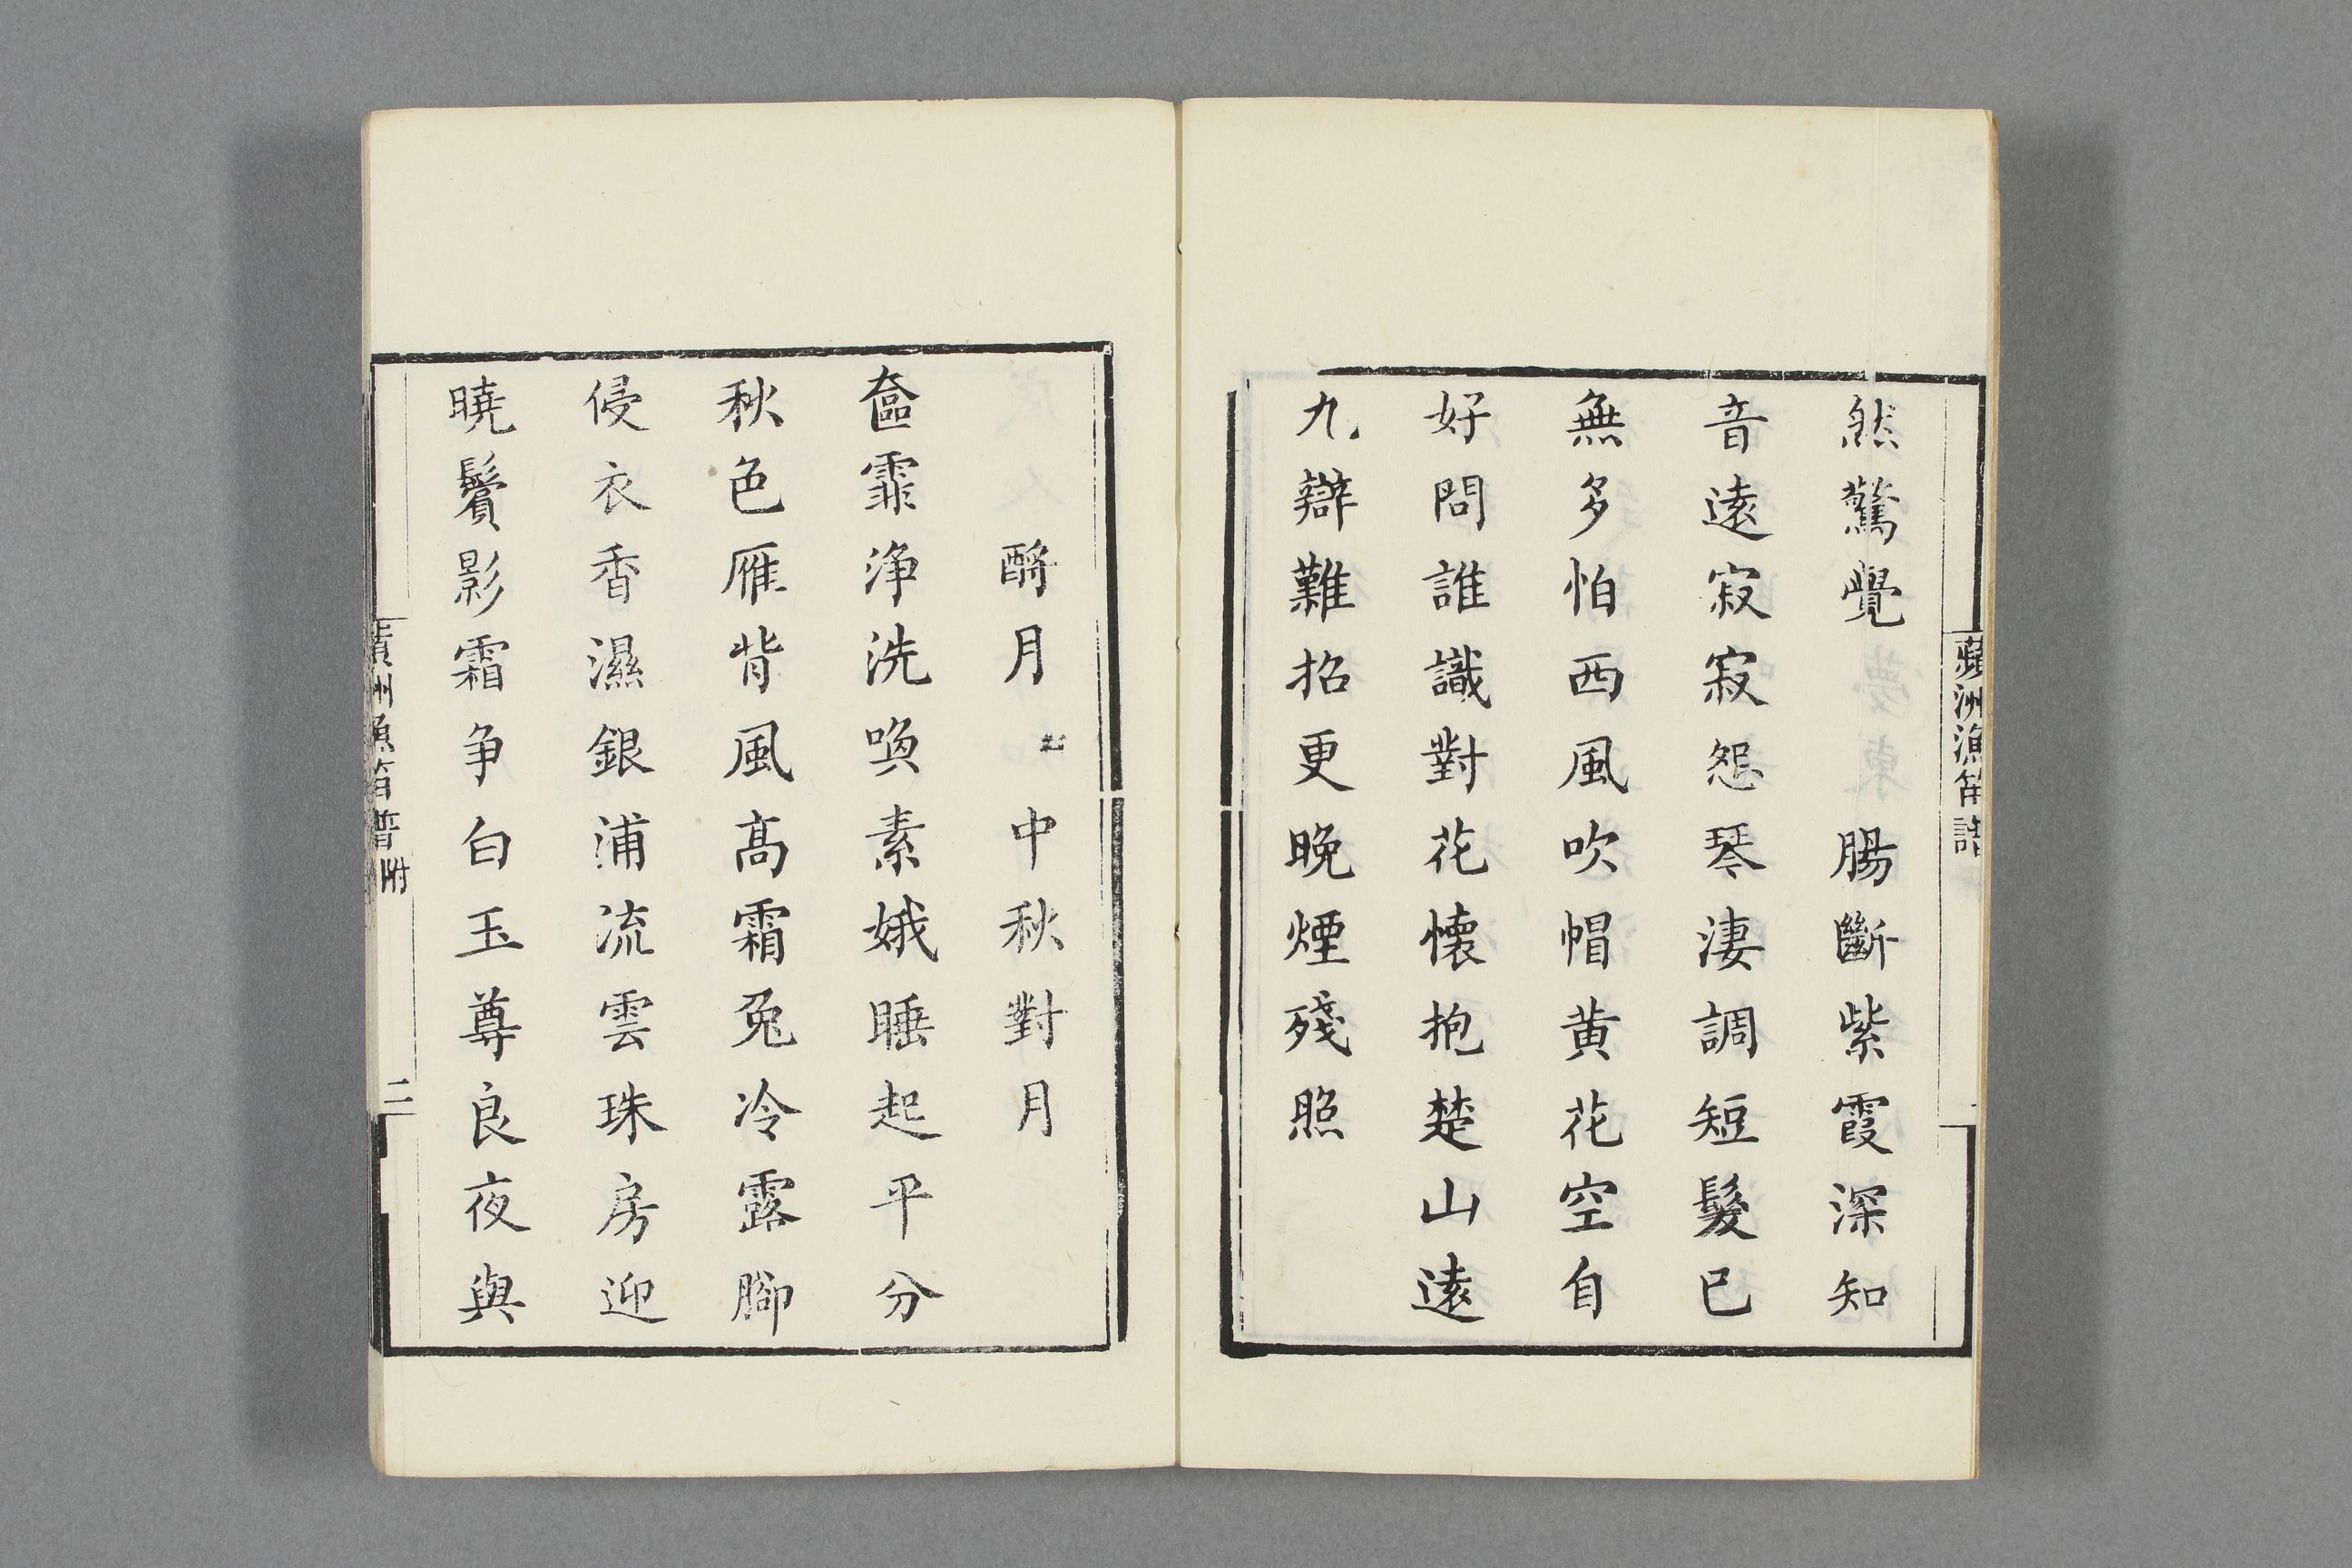 蘋洲漁笛譜
然驚覺　　腸斷紫霞深知
音遠寂寂怨琴淒調短髮已
無多怕西風吹帽黄花空自
好問誰識對花懷抱楚山遠
九辯難招更晚煙殘照
酹月　中秋對月
奩霏浄洗喚素娥睡起平分
秋色雁背風高霜兔冷露腳
侵衣香濕銀浦流雲珠房迎
曉鬢影霜争白玉尊良夜與
蘋洲漁笛譜附　二